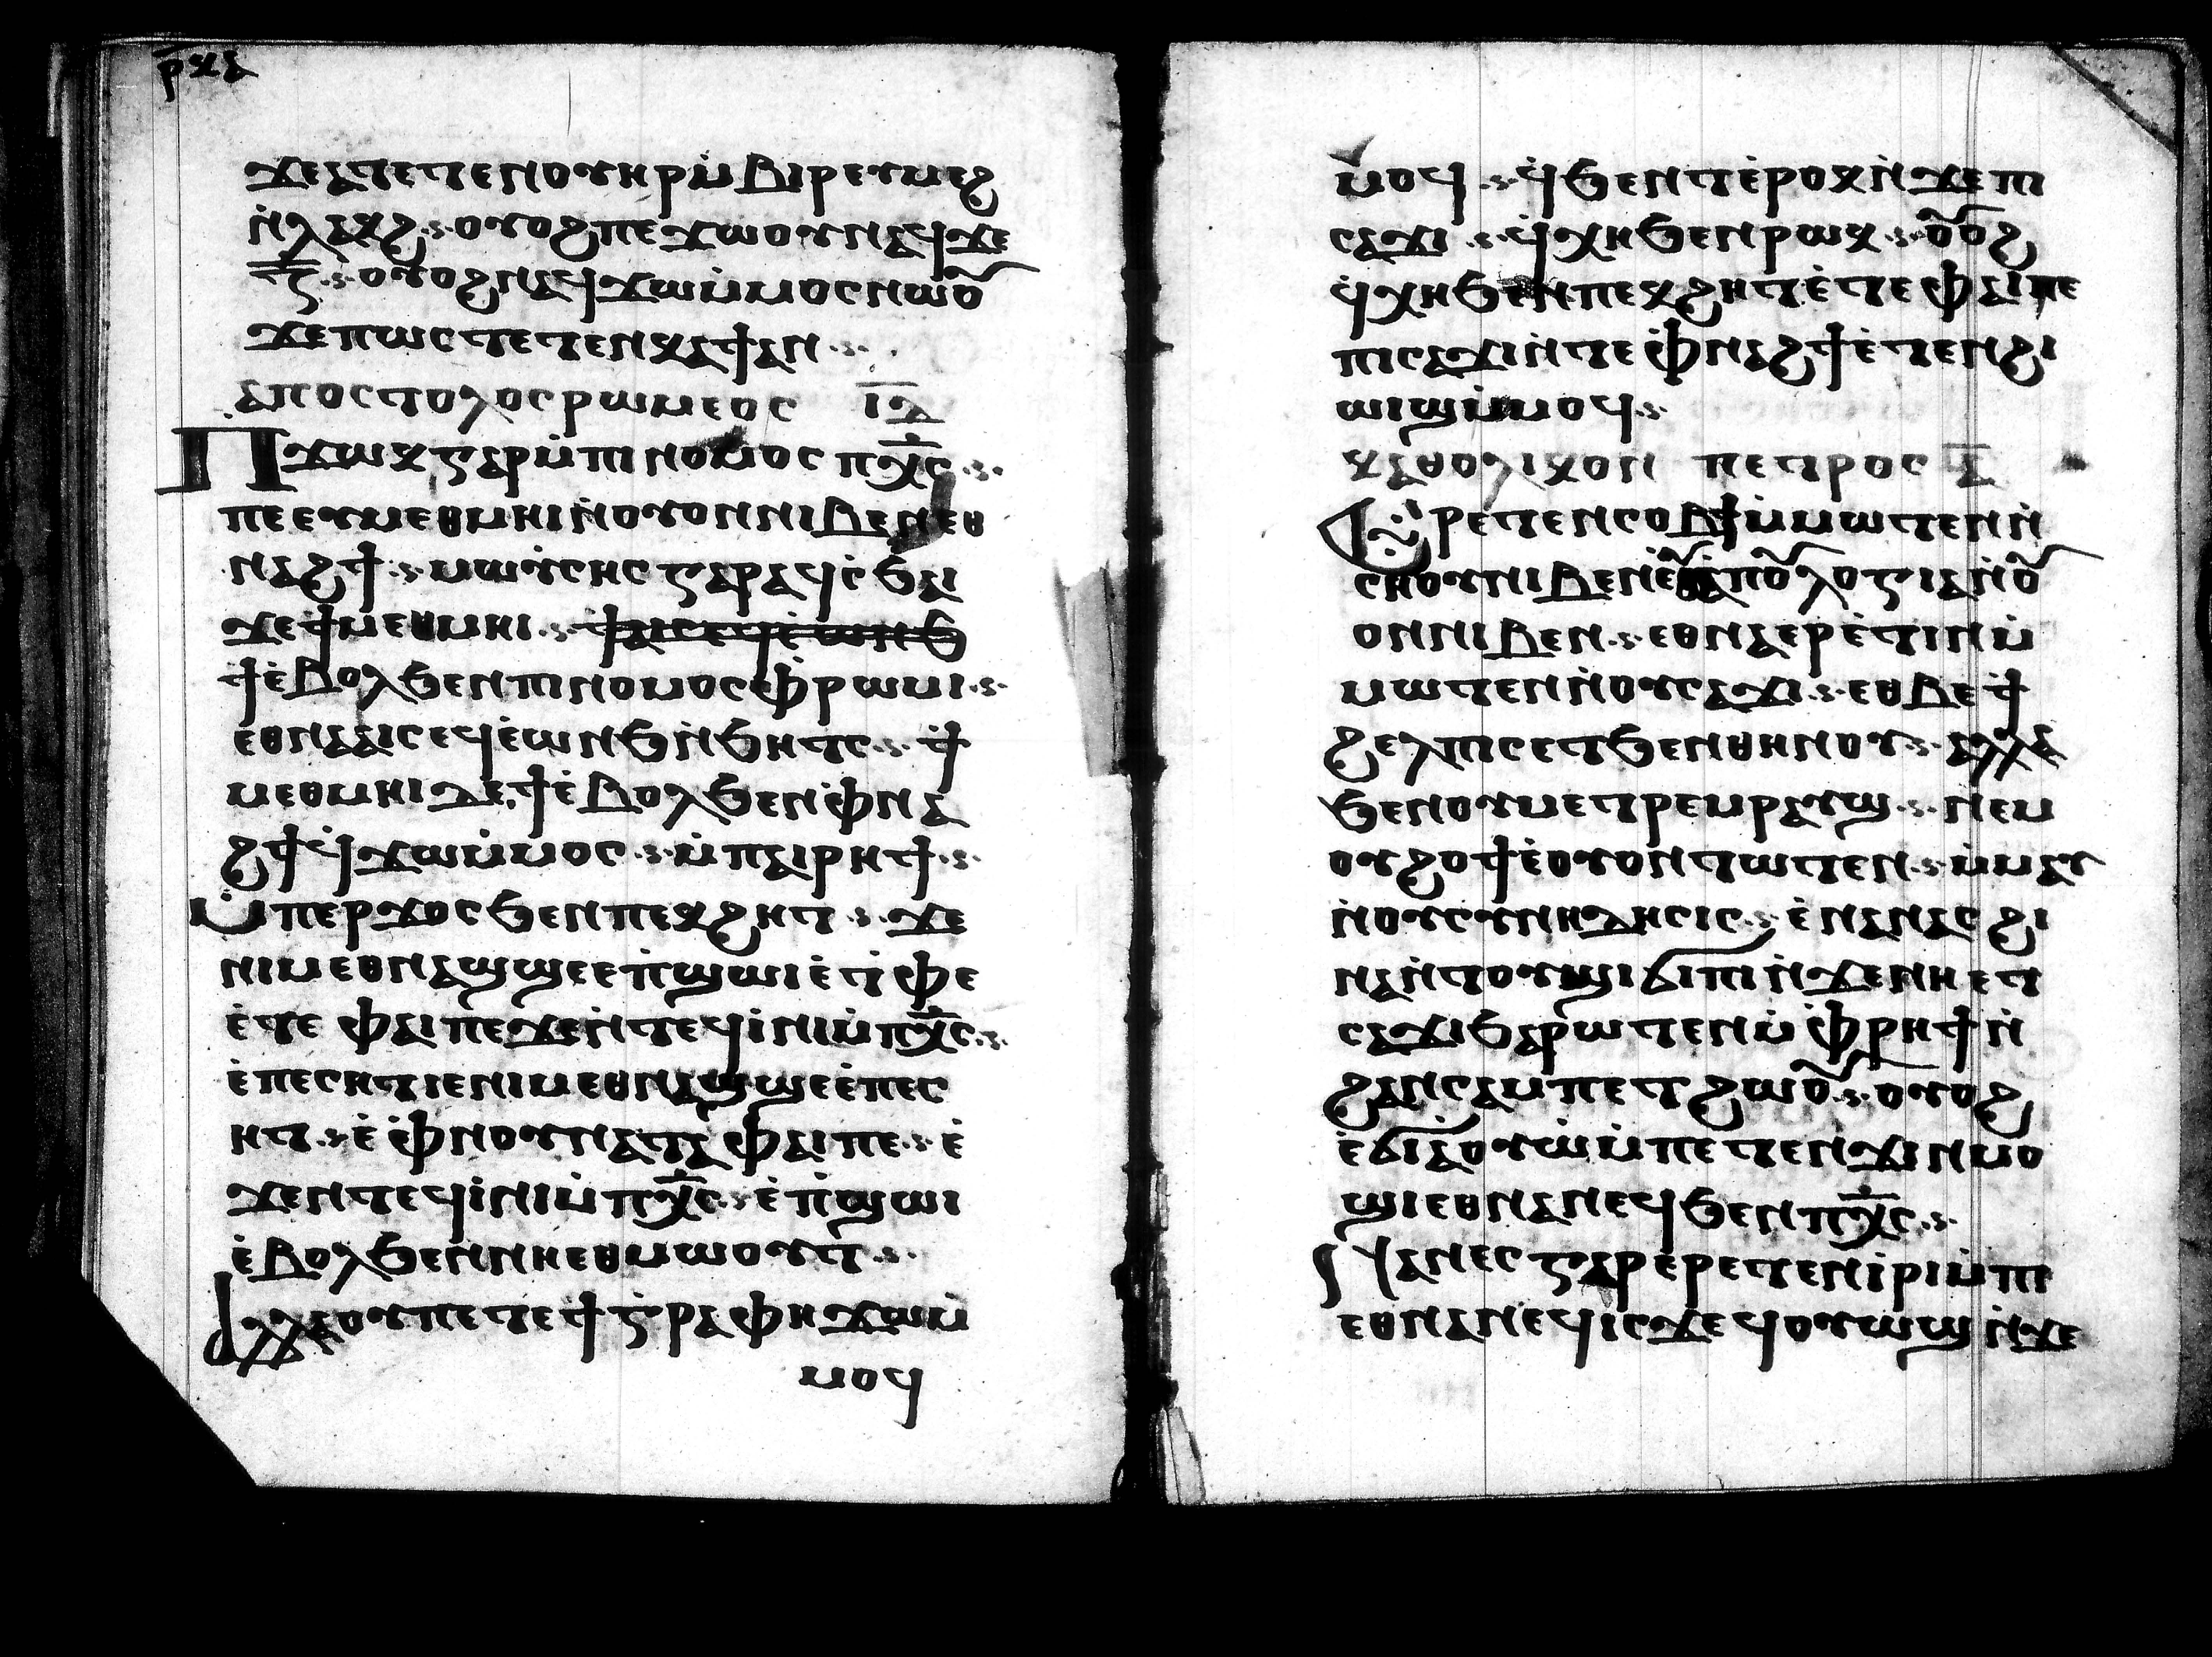 ⲣⲕⲇ
ϫⲉⲁⲧⲉⲧⲉⲛⲟⲩⲏⲣⲙ̇ⲃⲓⲣⲉⲩⲙⲉϩ
ⲛ̇ⲗⲁⲕϩ·ⲟⲩⲟϩⲡⲉϫⲱⲟⲩⲛⲁϥϫⲉ
ⲍ̅·ⲟⲩⲟϩⲛⲁϥϫⲱⲙ̇ⲙⲟⲥⲛⲱⲟⲩ
ϫⲉⲡⲱⲥⲧⲉⲧⲉⲛⲕⲁϯⲁⲛ·
ⲁⲡⲟⲥⲧⲟⲗⲟⲥⲣⲱⲙⲉⲟⲥ
ⲡϫⲱⲕⲅⲁⲣⲙ̇ⲡⲓⲛⲟⲙⲟⲥⲡⲭ̅ⲥ·
ⲡⲉⲉⲩⲙⲉⲑⲙⲏⲓⲛ̇ⲟⲩⲟⲛⲛⲓⲃⲉⲛⲉⲑ
ⲛⲁϩϯ·ⲙⲱⲩⲥⲏⲥⲅⲁⲣⲁϥⲥ̇ϧⲁⲓ
ϫⲉϯⲙⲉⲑⲙⲏⲓ·ⲫⲁⲓⲥⲉϥⲉ̇ⲱⲛϧ
ϯⲉ̇ⲃⲟⲗϧⲉⲛⲡⲓⲛⲟⲙⲟⲥⲫ̇ⲣⲱⲙⲓ·
ⲉⲑⲛⲁⲁⲓⲥⲉϥⲉ̇ⲱⲛϧⲛ̇ϧⲏⲧⲥ·ϯ
ⲙⲉⲑⲙⲏⲓⲇⲉϯⲉ̇ⲃⲟⲗϧⲉⲛⲫ̇ⲛⲁ
ϩϯϥ̇ϫⲱⲙ̇ⲙⲟⲥ·ⲙ̇ⲡⲁⲓⲣⲏϯ·
ⲙ̇ⲡⲉⲣϫⲟⲥϧⲉⲛⲡⲉⲕϩⲏⲧ·ϫⲉ
ⲛⲓⲙⲉⲑⲛⲁϣϣⲉⲉⲡ̇ϣⲱⲓⲉ̇ⲧ̇ⲫⲉ
ⲉ̇ⲧⲉⲫⲁⲓⲡⲉϫⲉⲛ̇ⲧⲉϥⲓ̇ⲛⲓⲙ̇ⲡⲭ̅ⲥ·
ⲉ̇ⲡⲉⲥⲏⲧⲓⲉⲛⲓⲙⲉⲑⲛⲁϣϣⲉⲉ̇ⲡⲉⲥ
ⲏⲧ·ⲉ̇ⲫ̇ⲛⲟⲩⲛⲁⲧⲁⲫⲁⲓⲡⲉ·ⲉ̇
ϫⲉⲛⲧⲉϥⲓ̇ⲛⲓⲙ̇ⲡⲭ̅ⲥ·ⲉ̇ⲡ̇ϣⲱⲓ
ⲉ̇ⲃⲟⲗϧⲉⲛⲛⲏⲉⲑⲙⲱⲟⲩⲧ·
ⲁⲗⲗⲁⲟⲩⲡⲉⲧⲉϯⲅ̇ⲣⲁⲫⲏϫⲱⲙ̇
ⲙⲟϥ
ⲙⲟϥ·ϥ̇ϧⲉⲛⲧⲉ̇ⲣⲟⲕⲛ̇ϫⲉⲡⲓ
ⲥⲁϫⲓ·ϥ̇ⲭⲏϧⲉⲛⲣⲱⲕ·ⲟⲩⲟϩ
ϥ̇ⲭⲏϧⲉⲛⲡⲉⲕϩⲏⲧⲉ̇ⲧⲉⲫⲁⲓⲡⲉ
ⲡⲓⲥⲁϫⲓⲛ̇ⲧⲉⲫ̇ⲛⲁϩϯⲉ̇ⲧⲉⲛϩⲓ
ⲱⲓϣⲙ̇ⲙⲟϥ·
ⲕⲁⲑⲟⲗⲓⲕⲟⲛ ⲡⲉⲧⲣⲟⲥ ⲁ̅
ⲉⲣⲉⲧⲉⲛⲥⲟⲃϯⲙ̇ⲙⲱⲧⲉⲛⲛ̇
ⲥⲏⲟⲩⲛⲓⲃⲉⲛⲉ̇ⲟⲩⲁⲡⲟⲗⲟⲅⲓⲁⲛ̇ⲟⲩ
ⲟⲛⲛⲓⲃⲉⲛ·ⲉⲑⲛⲁⲉⲣⲉ̇ⲧⲓⲛⲙ̇
ⲙⲱⲧⲉⲛⲛ̇ⲟⲩⲥⲁϫⲓ·ⲉⲑⲃⲉϯ
ϩⲉⲗⲡⲓⲥⲉⲧϧⲉⲛⲑⲏⲛⲟⲩ·ⲁⲗⲗⲁ
ϧⲉⲛⲟⲩⲙⲉⲧⲣⲉⲙⲣⲁⲩϣ·ⲛⲉⲙ
ⲟⲩϩⲟϯⲉ̇ⲟⲩⲟⲛⲧⲱⲧⲉⲛ·ⲙ̇ⲙⲁⲩ
ⲛ̇ⲟⲩⲥⲩⲛⲏⲇⲏⲥⲓⲥ·ⲉ̇ⲛⲁⲛⲁⲥϩⲓ
ⲛⲁⲛ̇ⲧⲟⲩϣⲓϭⲓⲡⲓⲛ̇ϫⲉⲛⲏⲉⲧ
ⲥⲁϫⲓϧⲁⲣⲱⲧⲉⲛⲙ̇ⲫ̇ⲣⲏϯⲛ̇
ϩⲁⲛⲥⲁⲙⲡⲉⲧϩⲱⲟⲩ·ⲟⲩⲟϩ
ⲉ̇ϭⲓⲁⲟⲩⲱ̇ⲙ̇ⲡⲉⲧⲉⲛϫⲓⲛⲙⲟ
ϣⲓⲉⲑⲛⲁⲛⲉϥϧⲉⲛⲡⲭ̅ⲥ·
ϥⲁⲛⲉⲥⲅⲁⲣⲉ̇ⲣⲉⲧⲉⲛⲓ̇ⲣⲓⲙ̇ⲡⲓ
ⲉⲑⲛⲁⲛⲉϥⲓⲥϫⲉϥⲟⲩⲱϣⲛ̇ϫⲉ